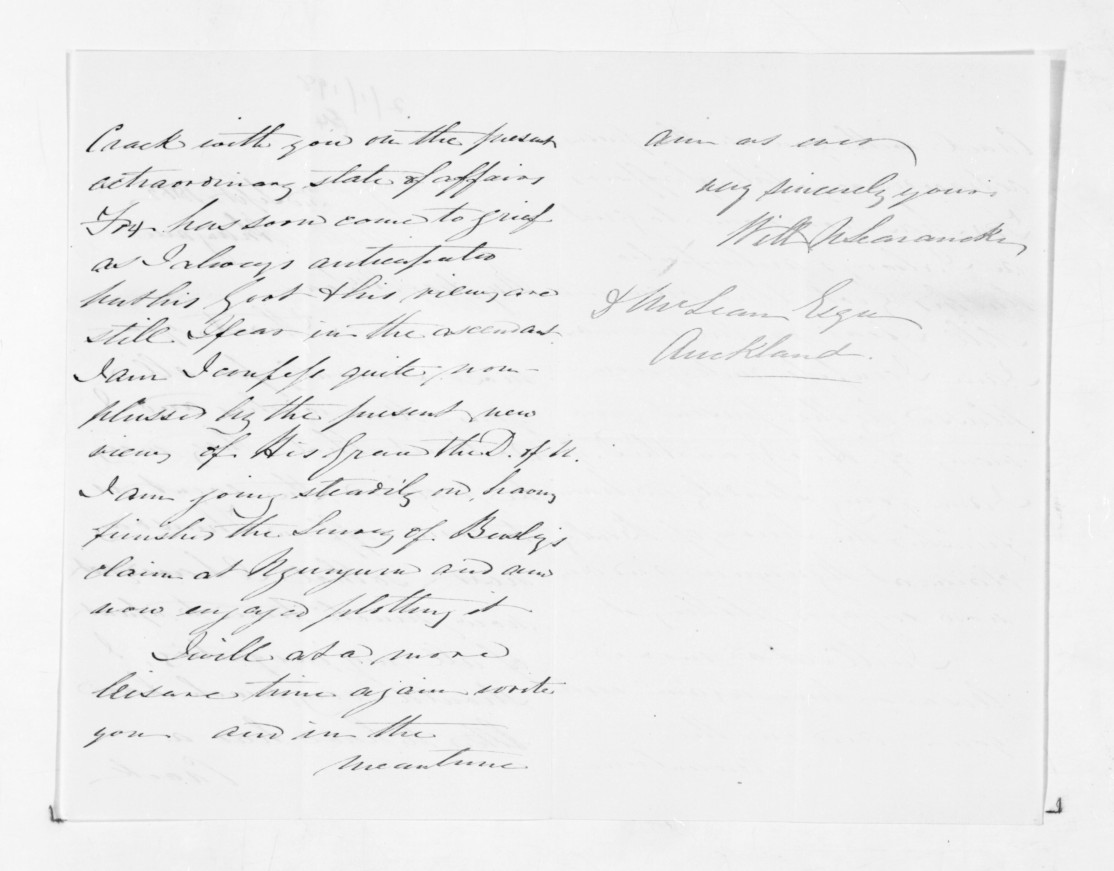 Crack with you on the present
extraordinary state of affairs
Fox has soon come to grief
as I always anticipated
but his Govt & his views are
still I fear in the ascendant.
I am I confess quite non-
plussed by the present new
views of His Grace the D. of N.
I am going steadily on, having
finished the Survey of
claim at and am
now engaged plotting it
I will at a more
leisure time again write
you and in the
meantime
aim as ever
very sincerely yours
Will N Searancke
McLean Esqre
Auckland.